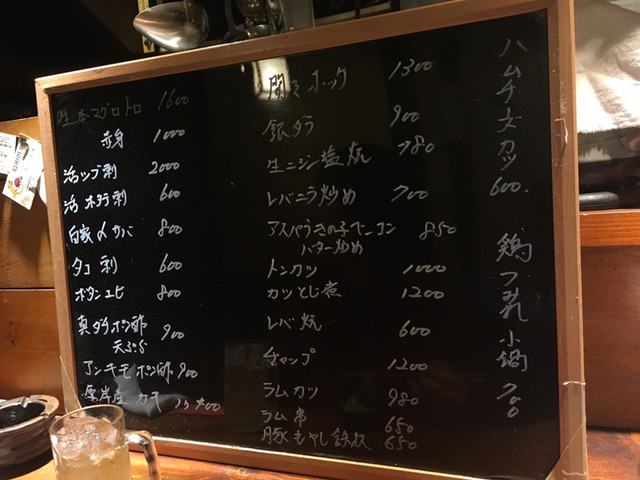 生本マグロトロ 1600
赤身 1000
活ツブ刺 2000
活ホタテ刺 600
自家〆サバ 800
タコ刺 600
ボタンエビ 800
真ダチポン酢 900
天ぷら
アンキモポン酢 900
厚岸産 カキ 400
開きホッケ 1300
銀ダラ 900
生ニシン塩焼 780
レバニラ炒め 700
アスパラきの子ベーコン 850
バター炒め
トンカツ 1000
カツとじ煮 1200
レバ焼 600
チャップ 1200
ラムカツ 980
ラム串 650
豚もやし鉄板 650
ハムチーズカツ 600.
鶏つみれ小鍋 700